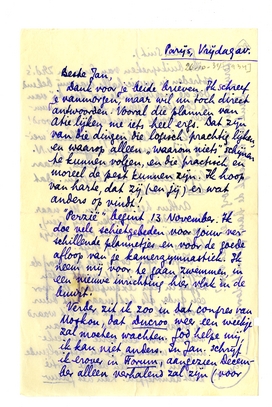 Parijs, Vrijdagav.
Beste Jan,
Dank voor je beide brieven. Ik schreef
je vanmorgen, maar wil nu toch direct
antwoorden. Vooral die plannen van
Atie lijken me iets, heel erg. Dat zijn
van die dingen die logisch prachtig lijken
en waarop alleen "waarom niet" schijnt
te kunnen volgen, en die practisch en
moreel de pest kunnen zijn. Ik hoop
van harte, dat zij (en jij) er wat
anders op vindt!
"Perzië" begint 13 November. Ik
doe vele schietgebeden voor jouw ver-
schillende plannetjes en voor de goede
afloop van je kamergymnastiek. Ik
neem mij voor te gaan zwemmen, in
een nieuwe inrichting hier vlak in de
buurt.
Verder zit ik zoo in dat congres van
Moskou, dat Ducroo weer een weekje
zal moeten wachten. God helpe mij
ik kan niet anders. In Jan. schrijf
ik erover in Forum, aangezien Decem-
ber alleen verhalend zal zijn (voor